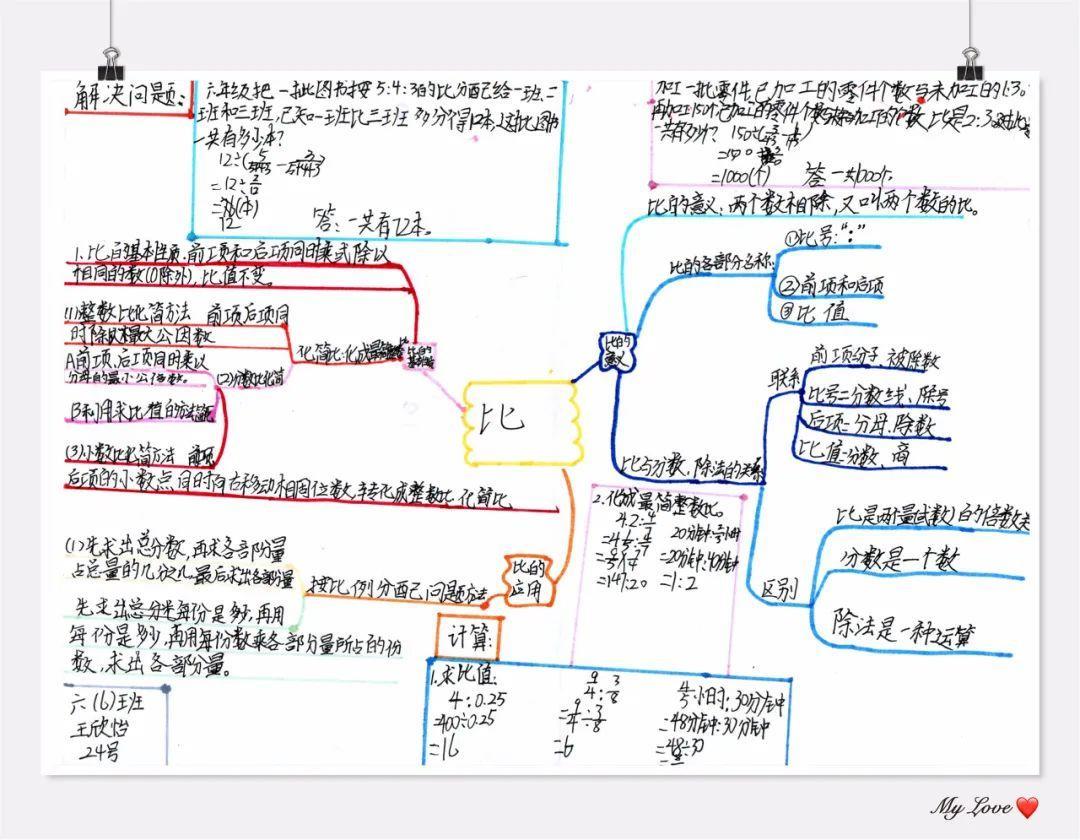 解决问题:
六年级把一批图书按5:4:3的比分配给一班、二
班和三班,已知一班比三班多分得12本,这批图书
一共有多少本?
12÷(
=12÷
=
12
答:一共有72本。
加工一批零件,已加工的零件个数与未加工的1:3。
一共有多少个? 150÷(
=150
=1000(个) 答一共
比的意义:两个数相除,又叫两个数的比。
比的各部分名称:
①比号:“:”
②前项和后项
③比值
比的
意义
1.比的基本性质:前项和后项同时乘或除以
相同的数(0除外),比值不变。
(1)整数比化简方法 前项后项同
时除以最大公因数
A前项、后项同时乘以
分母的最小公倍数。
(2)分数比化简
B利用求比值的方法
化简比:化成最简
(3)小数比化简方法 前项
后项的小数点同时向右移动相同位数,转化成整数比,化简比
比
比与分数、除法的关系
联系
前项分子、被除数
比号=分数线、除号
后项=分母、除数
比值分数、商
区别
比是两个量(或数)的倍数关
分数是一个数
除法是一种运算
(1)先求出总分数,再求各部分量
占总量的几分之几,最后求出各部分量
先求出总分是每份是多少,再用
每份是多少,再用每份数乘各部分量所占的份
数,求出各部分量。
按比例分配问题方法
比的
应用
2.化成最简整数比。
4.2:
20分钟:
=20分钟:40分钟
=147:20
=1:2
计算:
1.求比值:
4:0.25
=400÷0.25
=16
9/4:3/8
=9/4÷3/8
=6
4/5小时:30分钟
=48分钟:30分钟
=48÷30
六(6)班
王欣怡
24号
My Love